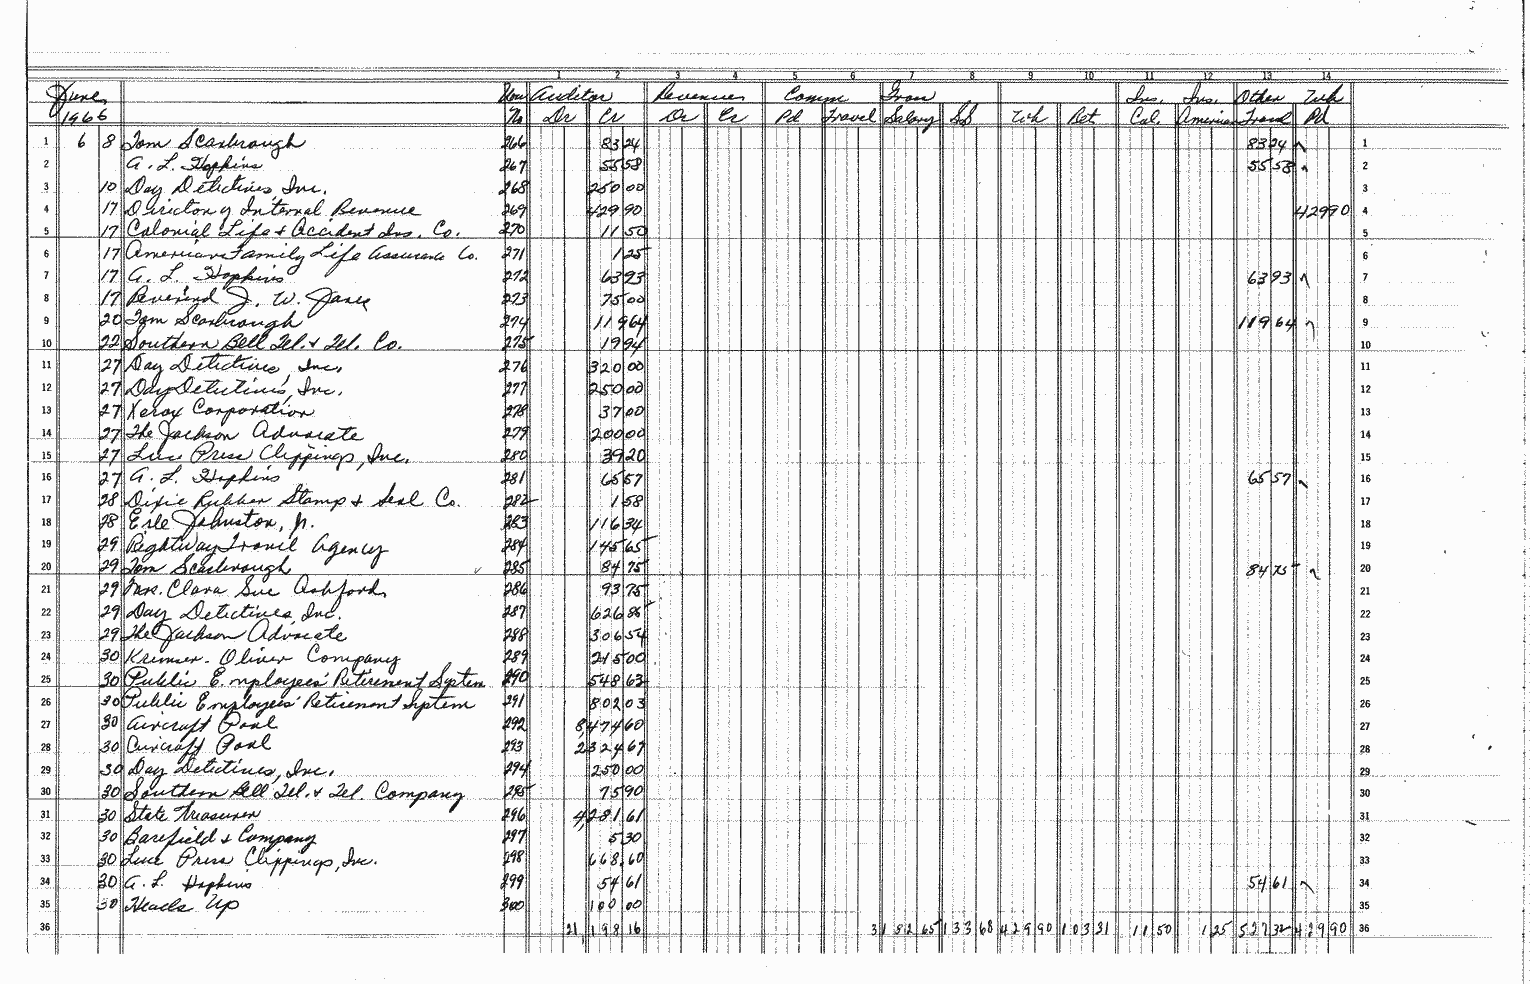 1 2 3 4 5 6 7 8 9 10 11 12 13 14
June Auditor Revenue Comm Tran Ins. Ins. Other Wh
1966 No Dr Cr Dr Cr Pd Travel Salary SS Wh Ret Cal. American Travel Pd
1 6 8 Tom Scarbrough 266 83 24 83 24 1
2 A. L. Hopkins 267 55 58 55 58 2
3 10 Day Detectives Inc. 268 250 00 3
4 17 Director of Internal Revenue 269 429 90 429 90 4
5 17 Colonial Life & Accident Ins. Co. 270 11 50 5
6 17 American Family Life Assurance Co. 271 1 25 6
7 17 A. L. Hopkins 272 63 93 63 93 7
8 17 Reverend J. W. Jones 273 75 00 8
9 20 Tom Scarbrough 274 119 64 119 64 9
10 22 Southern Bell Tel. & Tel. Co. 275 19 94 10
11 27 Day Detectives, Inc. 276 320 00 11
12 27 Day Detectives, Inc. 277 250 00 12
13 27 Xerox Corporation 278 37 00 13
14 27 The Jackson Advocate 279 200 00 14
15 27 Luce Press Clippings, Inc. 280 39 20 15
16 27 A. L. Hopkins 281 65 57 65 57 16
17 28 Dixie Rubber Stamp & Seal Co. 282 1 58 17
18 28 Erle Johnston, Jr. 283 116 34 18
19 29 Rightway Travel Agency 284 145 65 19
20 29 Tom Scarbrough 285 84 75 84 75 20
21 29 Mrs. Clara Sue Ashford 286 93 75 21
22 29 Day Detectives, Inc. 287 626 85 22
23 29 The Jackson Advocate 288 306 54 23
24 30 Oliver Company 289 215 00 24
25 30 Public Employees' Retirement System 290 548 63 25
26 30 Public Employees' Retirement System 291 802 03 26
27 30 Aircraft Pool 292 8,474 60 27
28 30 Aircraft Pool 293 2324 67 28
29 30 Day Detectives, Inc. 294 250 00 29
30 30 Southern Bell Tel. & Tel. Company 295 75 90 30
31 30 State Treasurer 296 4,281 61 31
32 30 Barefield & Company 297 5 30 32
33 30 Luce Press Clippings, Inc. 298 668.60 33
34 30 A. L. Hopkins 299 54 61 54 61 34
35 30 Heads Up 300 100 00 35
36 21 198 16 3 152 65 133 68 429 90 103 31 11 50 1 25 527 32 429 90 36